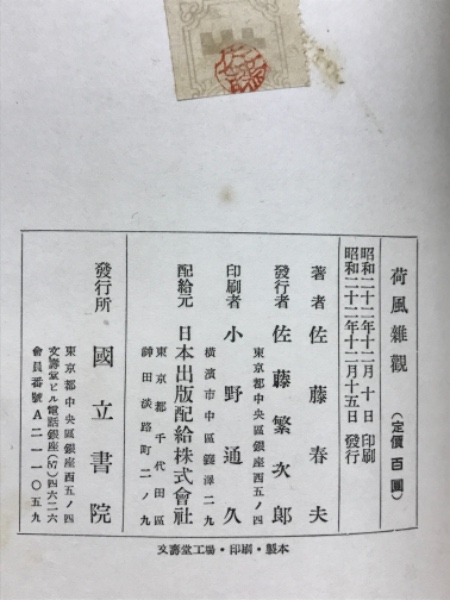 荷風雜觀 (定價百圓)
昭和二十二年十二月十日 印刷
昭和二十二年十二月十五日 發行
著者 佐藤春夫
發行者 佐藤繁次郎
東京都中央區銀座西五ノ四
印刷者 小野通久
橫濱市中區蓑澤二九
配給元 日本出版配給株式會社
東京都千代田區
神田淡路町二ノ九
發行所 國立書院
東京都中央區銀座西五ノ四
文壽堂ビル電話銀座(57)四六二六
會員番號A二一一〇五九
文壽堂工場・印刷・製本